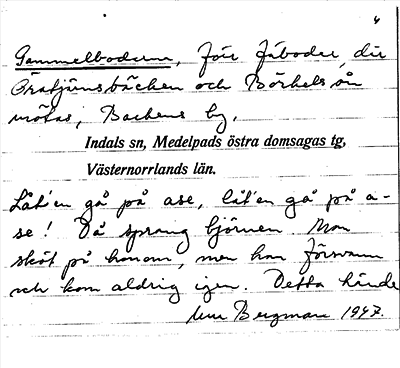 4
Gammelbodarna, förr fäbodar, där
Örätjärnsbäcken och Börhelsån
mötas, Backens by.
Indals sn, Medelpads östra domsagas tg,
Västernorrlands län.
Låt'en gå på ase, låt'en gå på a-
se! Då sprang björnen. Man
sköt på honom, men han försvann
och kom aldrig igen. Detta hände
Bergman 1947.